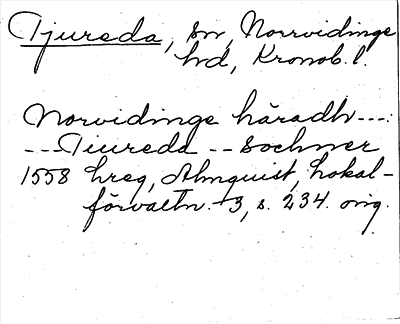 Tjureda, sn, Norrvidinge
hd, Kronob. l.
Norvidinge häradh ---:
--- Tiureda -- Sochner
1558 hreg, Almquist, Lokal-
förvaltn. 3, s. 234. orig.